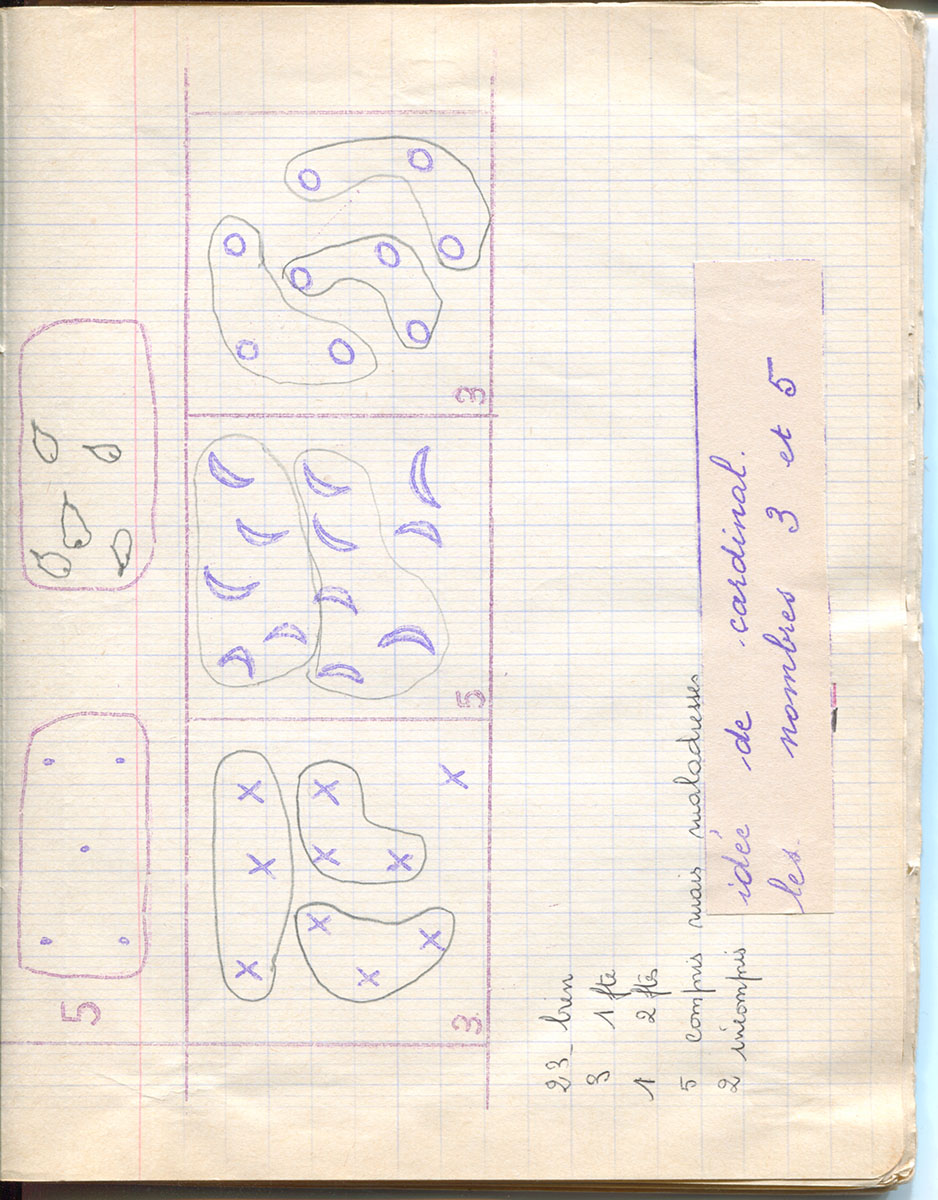 5
3
5
3
23 - bien
3 1 fte
1 2 ftes
5 compris mais maladresses
2 incompris
idée de cardinal.
les nombres 3 et 5